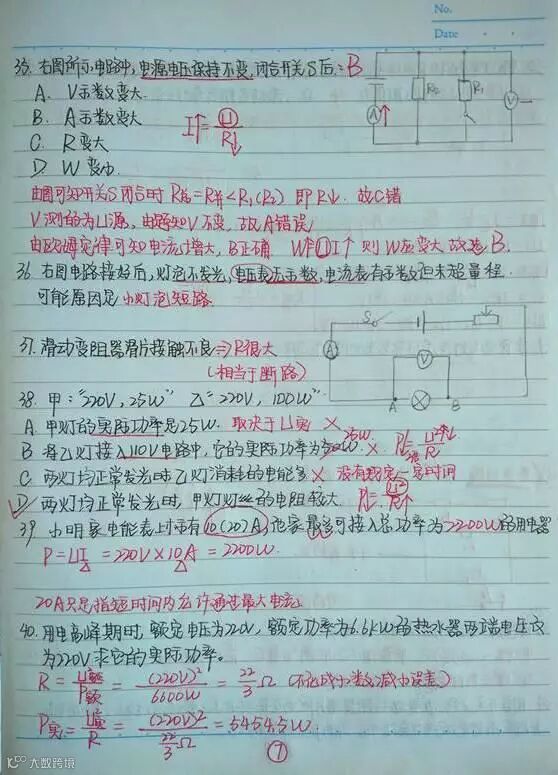 No.
Date
35. 右图所示电路中,电源电压保持不变,闭合开关S后:B
A. V示数变大
B. A示数变大
C. R变大
D. W变小
I↑=U/R↓
A
R2
R1
V
由图可知开关S闭合时 R后=R并<R1(R2) 即R↓. 故C错
V测的为U源,由题知V不变,故A错误
由欧姆定律可知电流I增大,B正确 W=UI↑ 则W应变大 故选B.
36. 右图电路接好后,灯泡不发光,电压表无示数,电流表有示数但未超量程.
可能原因是小灯泡短路.
S
A
V
A
B
37. 滑动变阻器滑片接触不良⇒R很大
(相当于断路)
38. 甲:"220V,25W" 乙="220V,100W"
A. 甲灯的实际功率是25W. 取决于U实 ×
B. 将乙灯接入110V电路中,它的实际功率为50W. 25W × P=U²↓/R
C. 两灯均正常发光时乙灯消耗的电能多 × 没有规定一定时间
D. 两灯均正常发光时,甲灯灯丝的电阻较大. P=U²/R↑
39. 小明家电能表上标有10(20)A,他家最多可接入总功率为2200W的用电器
P=UI=220V×10A=2200W.
20A只是指短时间内允许通过最大电流
40. 用电高峰期时,额定电压为220V,额定功率为6.6kW的热水器两端电压
为220V求它的实际功率。
R=U额²/P额=(220V)²/6600W=22/3Ω (不化成小数,减小误差)
P实=U实²/R=(220V)²/(22/3Ω)=5454.5W.
7
大数跨境